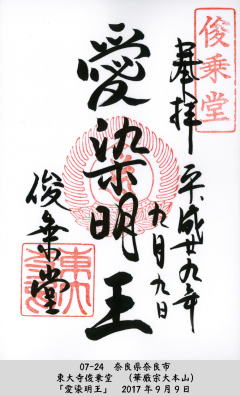 俊乗堂
奉拝
平成廿九年
九月九日
愛染明王
俊乗堂
07-24 奈良県奈良市
東大寺俊乗堂 (華厳宗大本山)
「愛染明王」 2017年9月9日